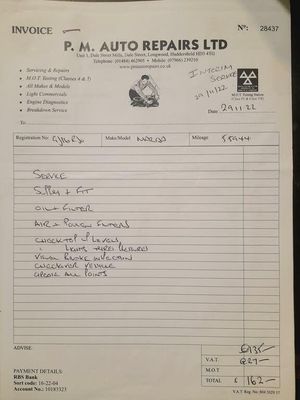 INVOICE
Nº: 28437
P. M. AUTO REPAIRS LTD
Unit 1, Dale Street Mills, Dale Street, Longwood, Huddersfield HD3 4TG
Telephone: (01484) 462905 • Mobile: (07966) 239210
www.pmautorepairs.co.uk
• Servicing & Repairs
• M.O.T. Testing (Classes 4 & 7)
• All Makes & Models
• Light Commercials
• Engine Diagnostics
• Breakdown Service
INTERIM
SERVICE
29/11/22
M.O.T. Testing Station
Date 29.11.22
To
Registration No:
Make/Model
Mileage
SERVICE
SUPPLY + FIT
OIL + FILTER
AIR + POLLEN FILTERS
CHECK TOP UP LEVELS
" LIGHTS TYRES
VISUAL BRAKE INSPECTION
CHECK OVER VEHICLE
GREASE ALL POINTS
ADVISE:
£135-
V.A.T. £27-
M.O.T
TOTAL £ 162-
PAYMENT DETAILS:
RBS Bank
Sort code: 16-22-04
Account No: 10183323
V.A.T Reg. No.